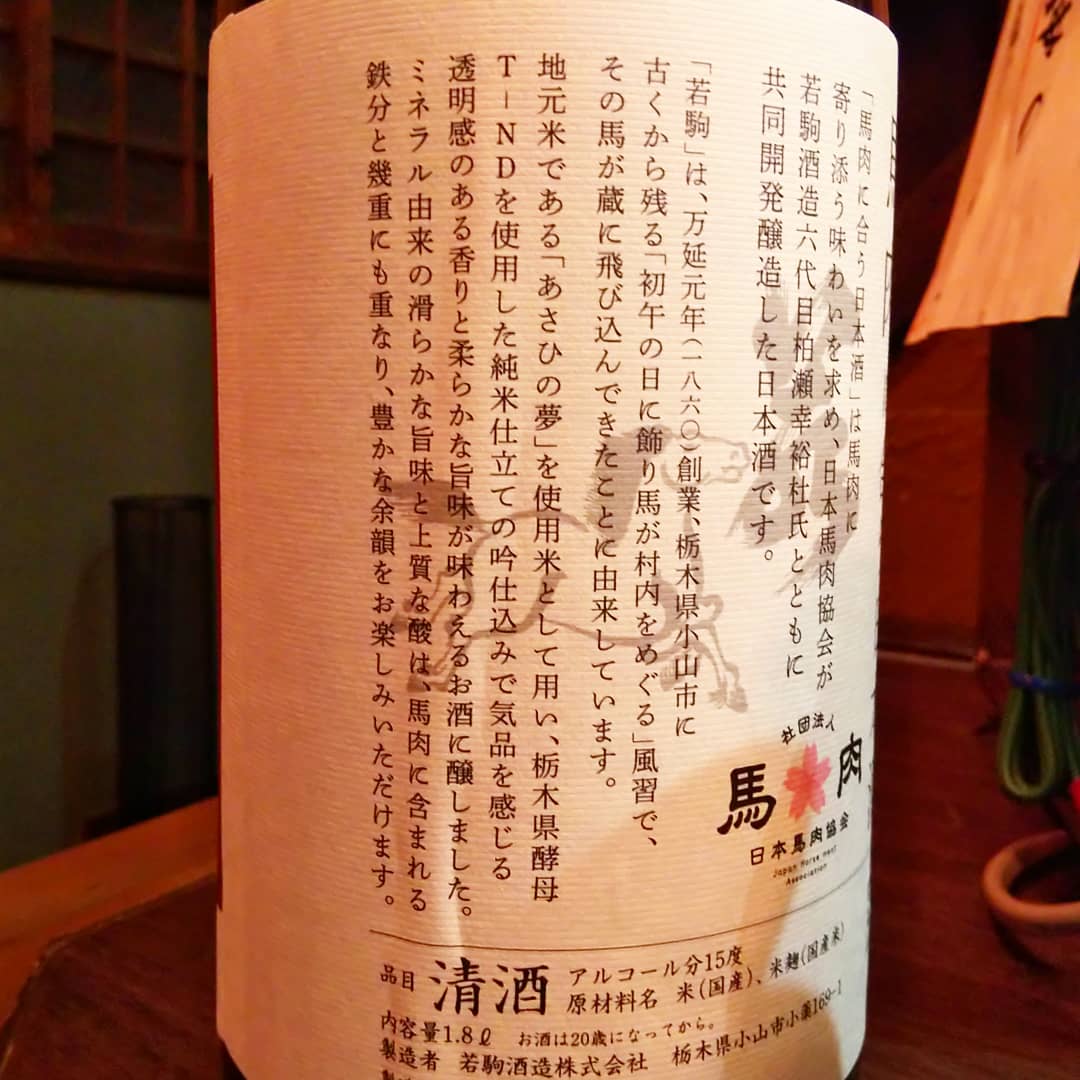 「馬肉に合う日本酒」は馬肉に
寄り添う味わいを求め、日本馬肉協会が
若駒酒造六代目柏瀬幸裕杜氏とともに
共同開発醸造した日本酒です。
「若駒」は、万延元年(一八六〇)創業、栃木県小山市に
古くから残る「初午の日に飾り馬が村内をめぐる」風習で、
その馬が蔵に飛び込んできたことに由来しています。
地元米である「あさひの夢」を使用米として用い、栃木県酵母
T-NDを使用した純米仕立ての吟仕込みで気品を感じる
透明感のある香りと柔らかな旨味が味わえるお酒に醸しました。
ミネラル由来の滑らかな旨味と上質な酸は、馬肉に含まれる
鉄分と幾重にも重なり、豊かな余韻をお楽しみいただけます。
社団法人
馬肉
日本馬肉協会
Japan Horse meat
Association
品目 清酒 アルコール分15度
原材料名 米(国産)、米麹(国産米)
内容量1.8ℓ お酒は20歳になってから。
製造者 若駒酒造株式会社 栃木県小山市小薬169-1